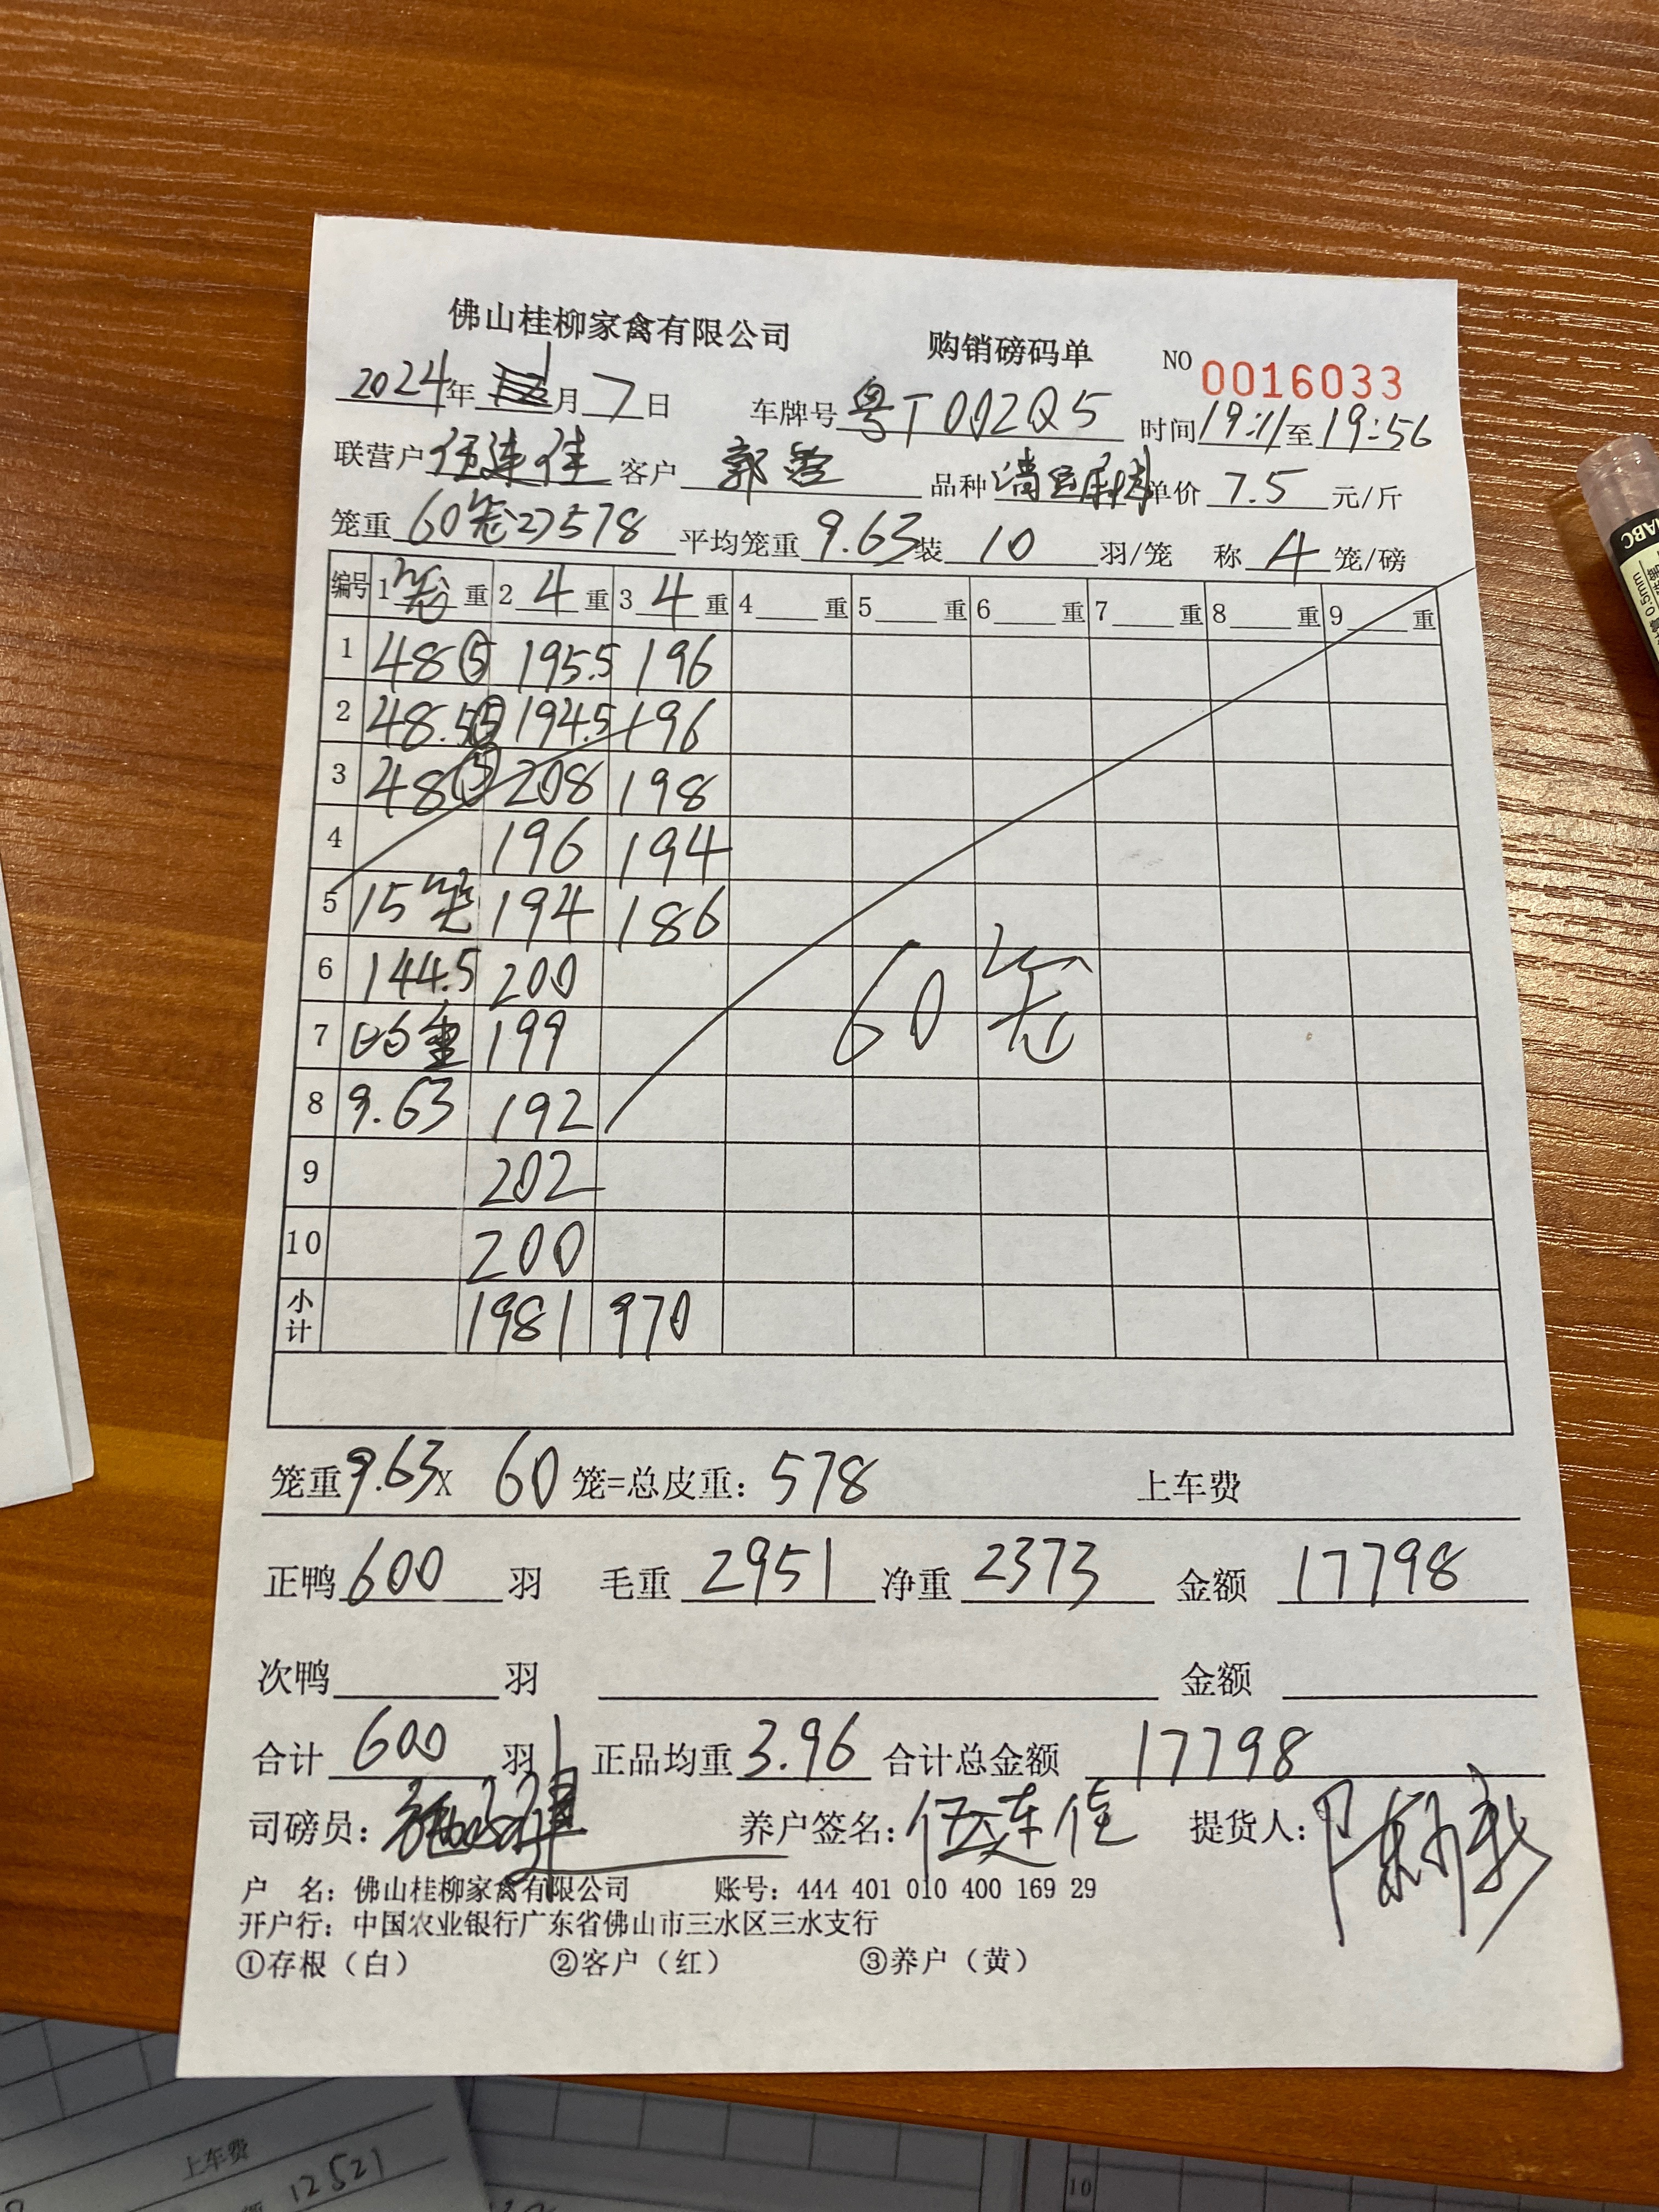 佛山桂柳家禽有限公司 购销磅码单 NO 0016033
2024年 1月 7日 车牌号 粤T 002Q5 时间 19:11 至 19:56
联营户 伍连佳 客户 郭 品种 单价 7.5 元/斤
笼重 60笼 578 平均笼重 9.63 装 10 羽/笼 称 4 笼/磅
编号 1 笼 重 2 4 重 3 4 重 4 重 5 重 6 重 7 重 8 重 9 重
1 48⑤ 195.5 196
2 48.5⑤ 194.5 196
3 48⑤ 208 198
4 196 194
5 15笼 194 186
6 144.5 200
7 均重 199 60笼
8 9.63 192
9 202
10 200
小计 1981 970
笼重 9.63 X 60 笼=总皮重: 578 上车费
正鸭 600 羽 毛重 2951 净重 2373 金额 17798
次鸭 羽 金额
合计 600 羽 正品均重 3.96 合计总金额 17798
司磅员: 养户签名: 伍连佳 提货人:
户 名: 佛山桂柳家禽有限公司 账号: 444 401 010 400 169 29
开户行: 中国农业银行广东省佛山市三水区三水支行
①存根（白） ②客户（红） ③养户（黄）
上车费
12521
10